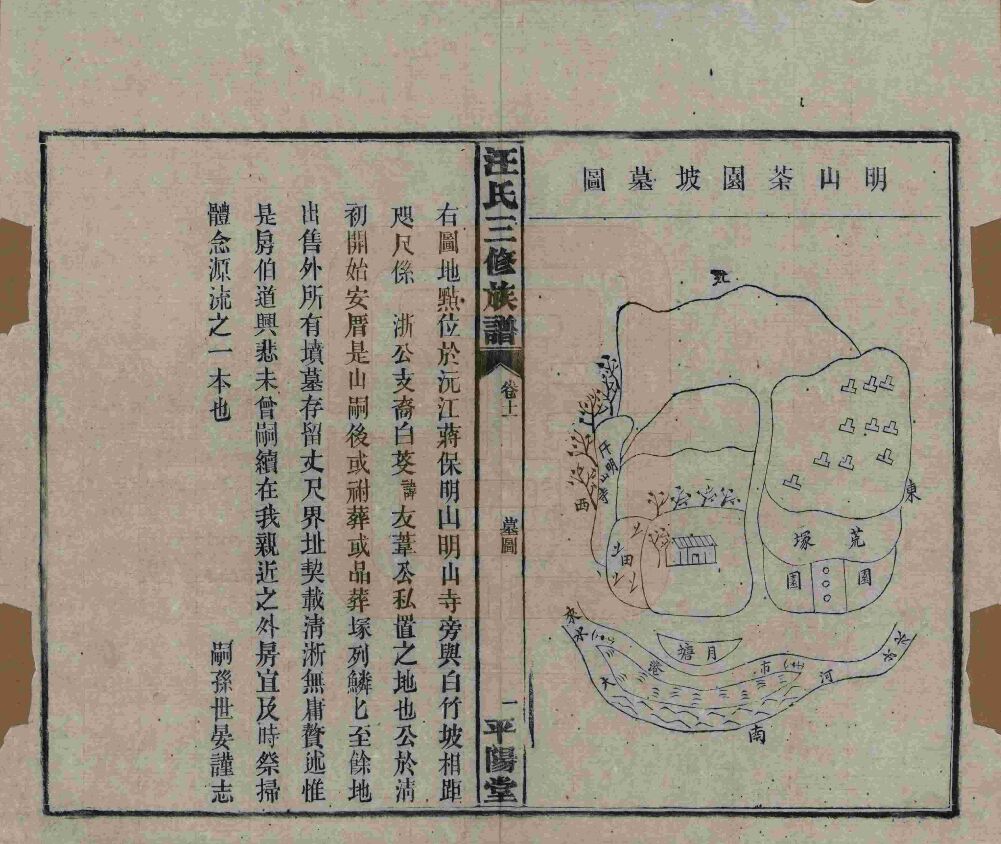 明山茶園坡墓圖
北
東
西
南
斤明山寺
田
荒塚
園
園
月塘
來水
大港市河
去水
汪氏三修族譜
卷上
墓圖
一
平陽堂
右圖地點位於沅江蔣保明山明山寺旁與白竹坡相距
咫尺係　浙公支裔白芰諱友葦公私置之地也公於淸
初開始安厝是山嗣後或祔葬或品葬塚列鱗匕至餘地
出售外所有墳墓存留丈尺界址契載淸淅無庸贅述惟
是房伯道興悲未曾嗣續在我親近之外房宜及時祭掃
體念源流之一本也
嗣孫世晏謹志